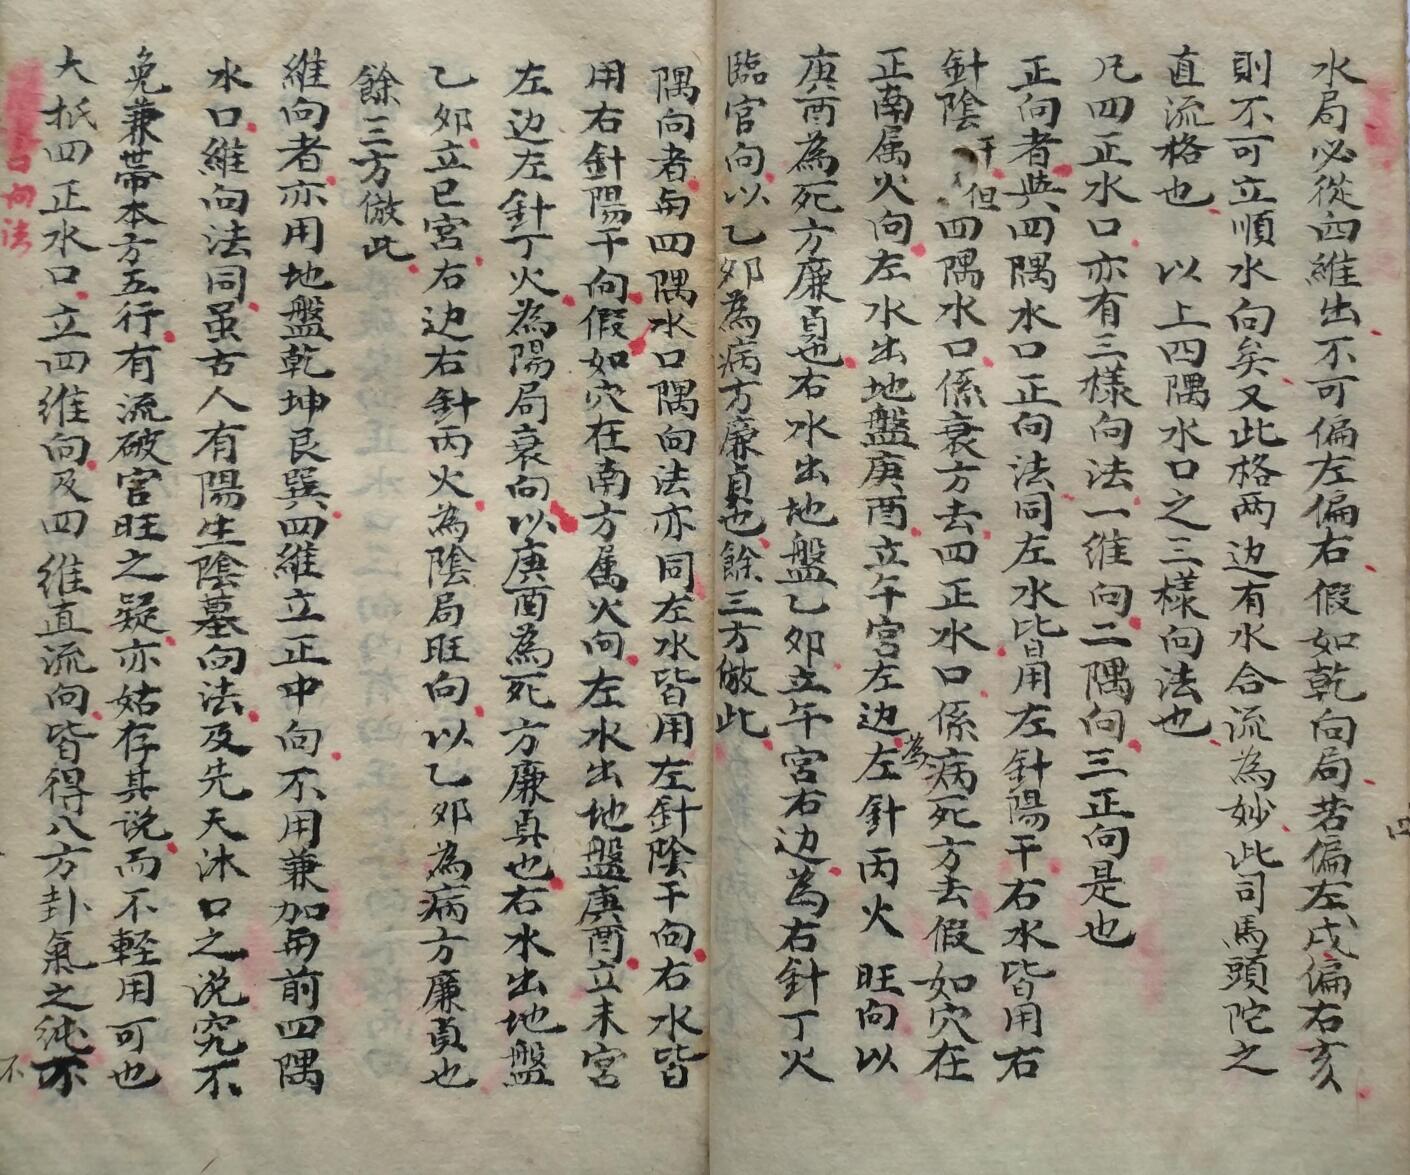 水局必從四維出不可偏左偏右假如乾向局若偏左戌偏右亥
則不可立順水向矣又此格两边有水合流為妙此司馬頭陀之
直流格也 以上四隅水口之三樣向法也
凡四正水口亦有三樣向法一维向二隅向三正向是也
正向者與四隅水口正向法同左水皆用左針陽干右水皆用右
針陰干但四隅水口係衰方去四正水口係病死方去假如穴在
正南属火向左水出地盤庚酉立午宮左边為左針丙火旺向以
庚酉為死方廉貞也右水出地盤乙夘立午宮右边為右針丁火
臨官向以乙夘為病方廉貞也餘三方倣此
隅向者与四隅水口隅向法亦同左水皆用左針陰干向右水皆
用右針陽干向假如穴在南方属火向左水出地盤庚酉立未宮
左边左針丁火為陽局衰向以庚酉為死方廉真也右水出地盤
乙夘立巳宮右边右針丙火為陰局旺向以乙夘為病方廉貞也
餘三方倣此
維向者亦用地盤乾坤艮巽四維立正中向不用兼加与前四隅
水口維向法同虽古人有陽生陰墓向法及先天沐口之说究不
免兼帯本方五行有流破官旺之疑亦姑存其说而不輕用可也
大抵四正水口立四维向及四维直流向皆得八方卦氣之純不
吉向法
四
不